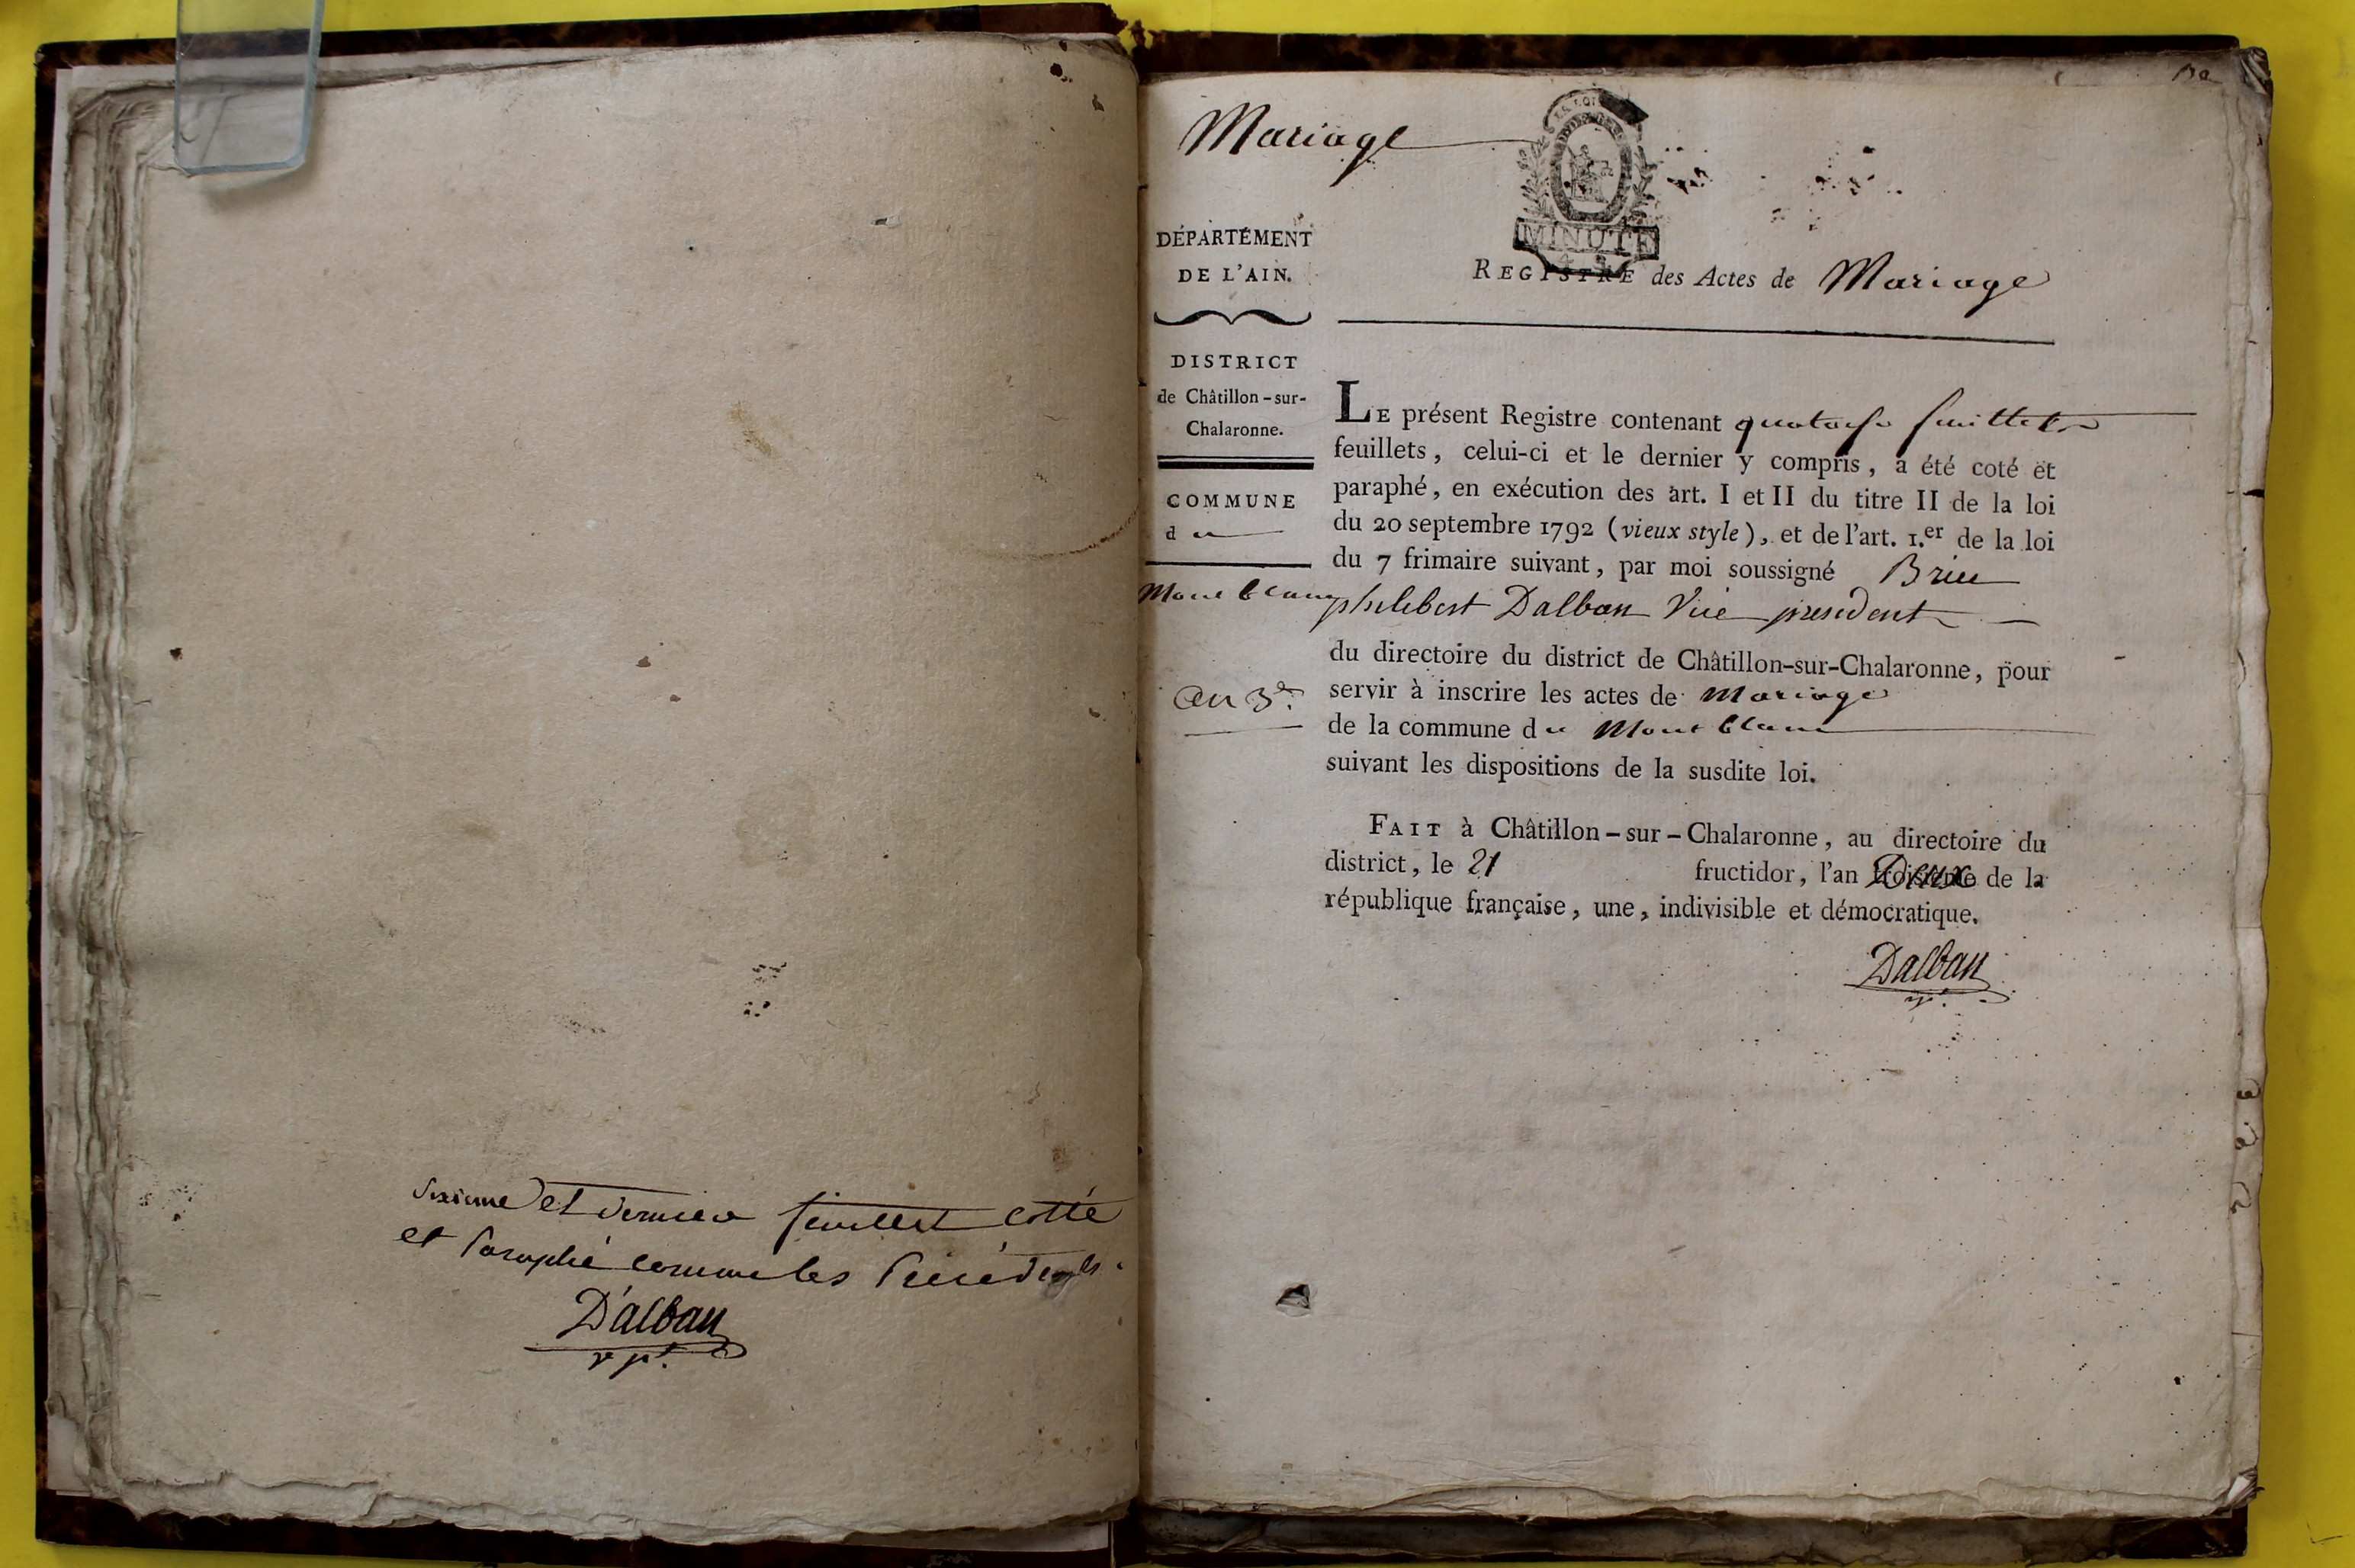 Sixieme et dernier feuillet cotté
et Paraphé comme les Précédents.
D'alban
v pt.
Mariage
MINUTE
DÉPARTEMENT
DE L'AIN.
DISTRICT
de Châtillon-sur-
Chalaronne.
COMMUNE
du
Mont blanc
an 3e.
REGISTRE des Actes de Mariage
LE présent Registre contenant quatorse feuillets
feuillets, celui-ci et le dernier y compris, a été coté et
paraphé, en exécution des art. I et II du titre II de la loi
du 20 septembre 1792 (vieux style), et de l'art. 1.er de la loi
du 7 frimaire suivant, par moi soussigné
philibert Dalban Vice president
du directoire du district de Châtillon-sur-Chalaronne, pour
servir à inscrire les actes de Mariage
de la commune du Mont blanc
suivant les dispositions de la susdite loi.
FAIT à Châtillon-sur-Chalaronne, au directoire du
district, le 21 fructidor, l'an Deux de la
république française, une, indivisible et démocratique.
Dalban